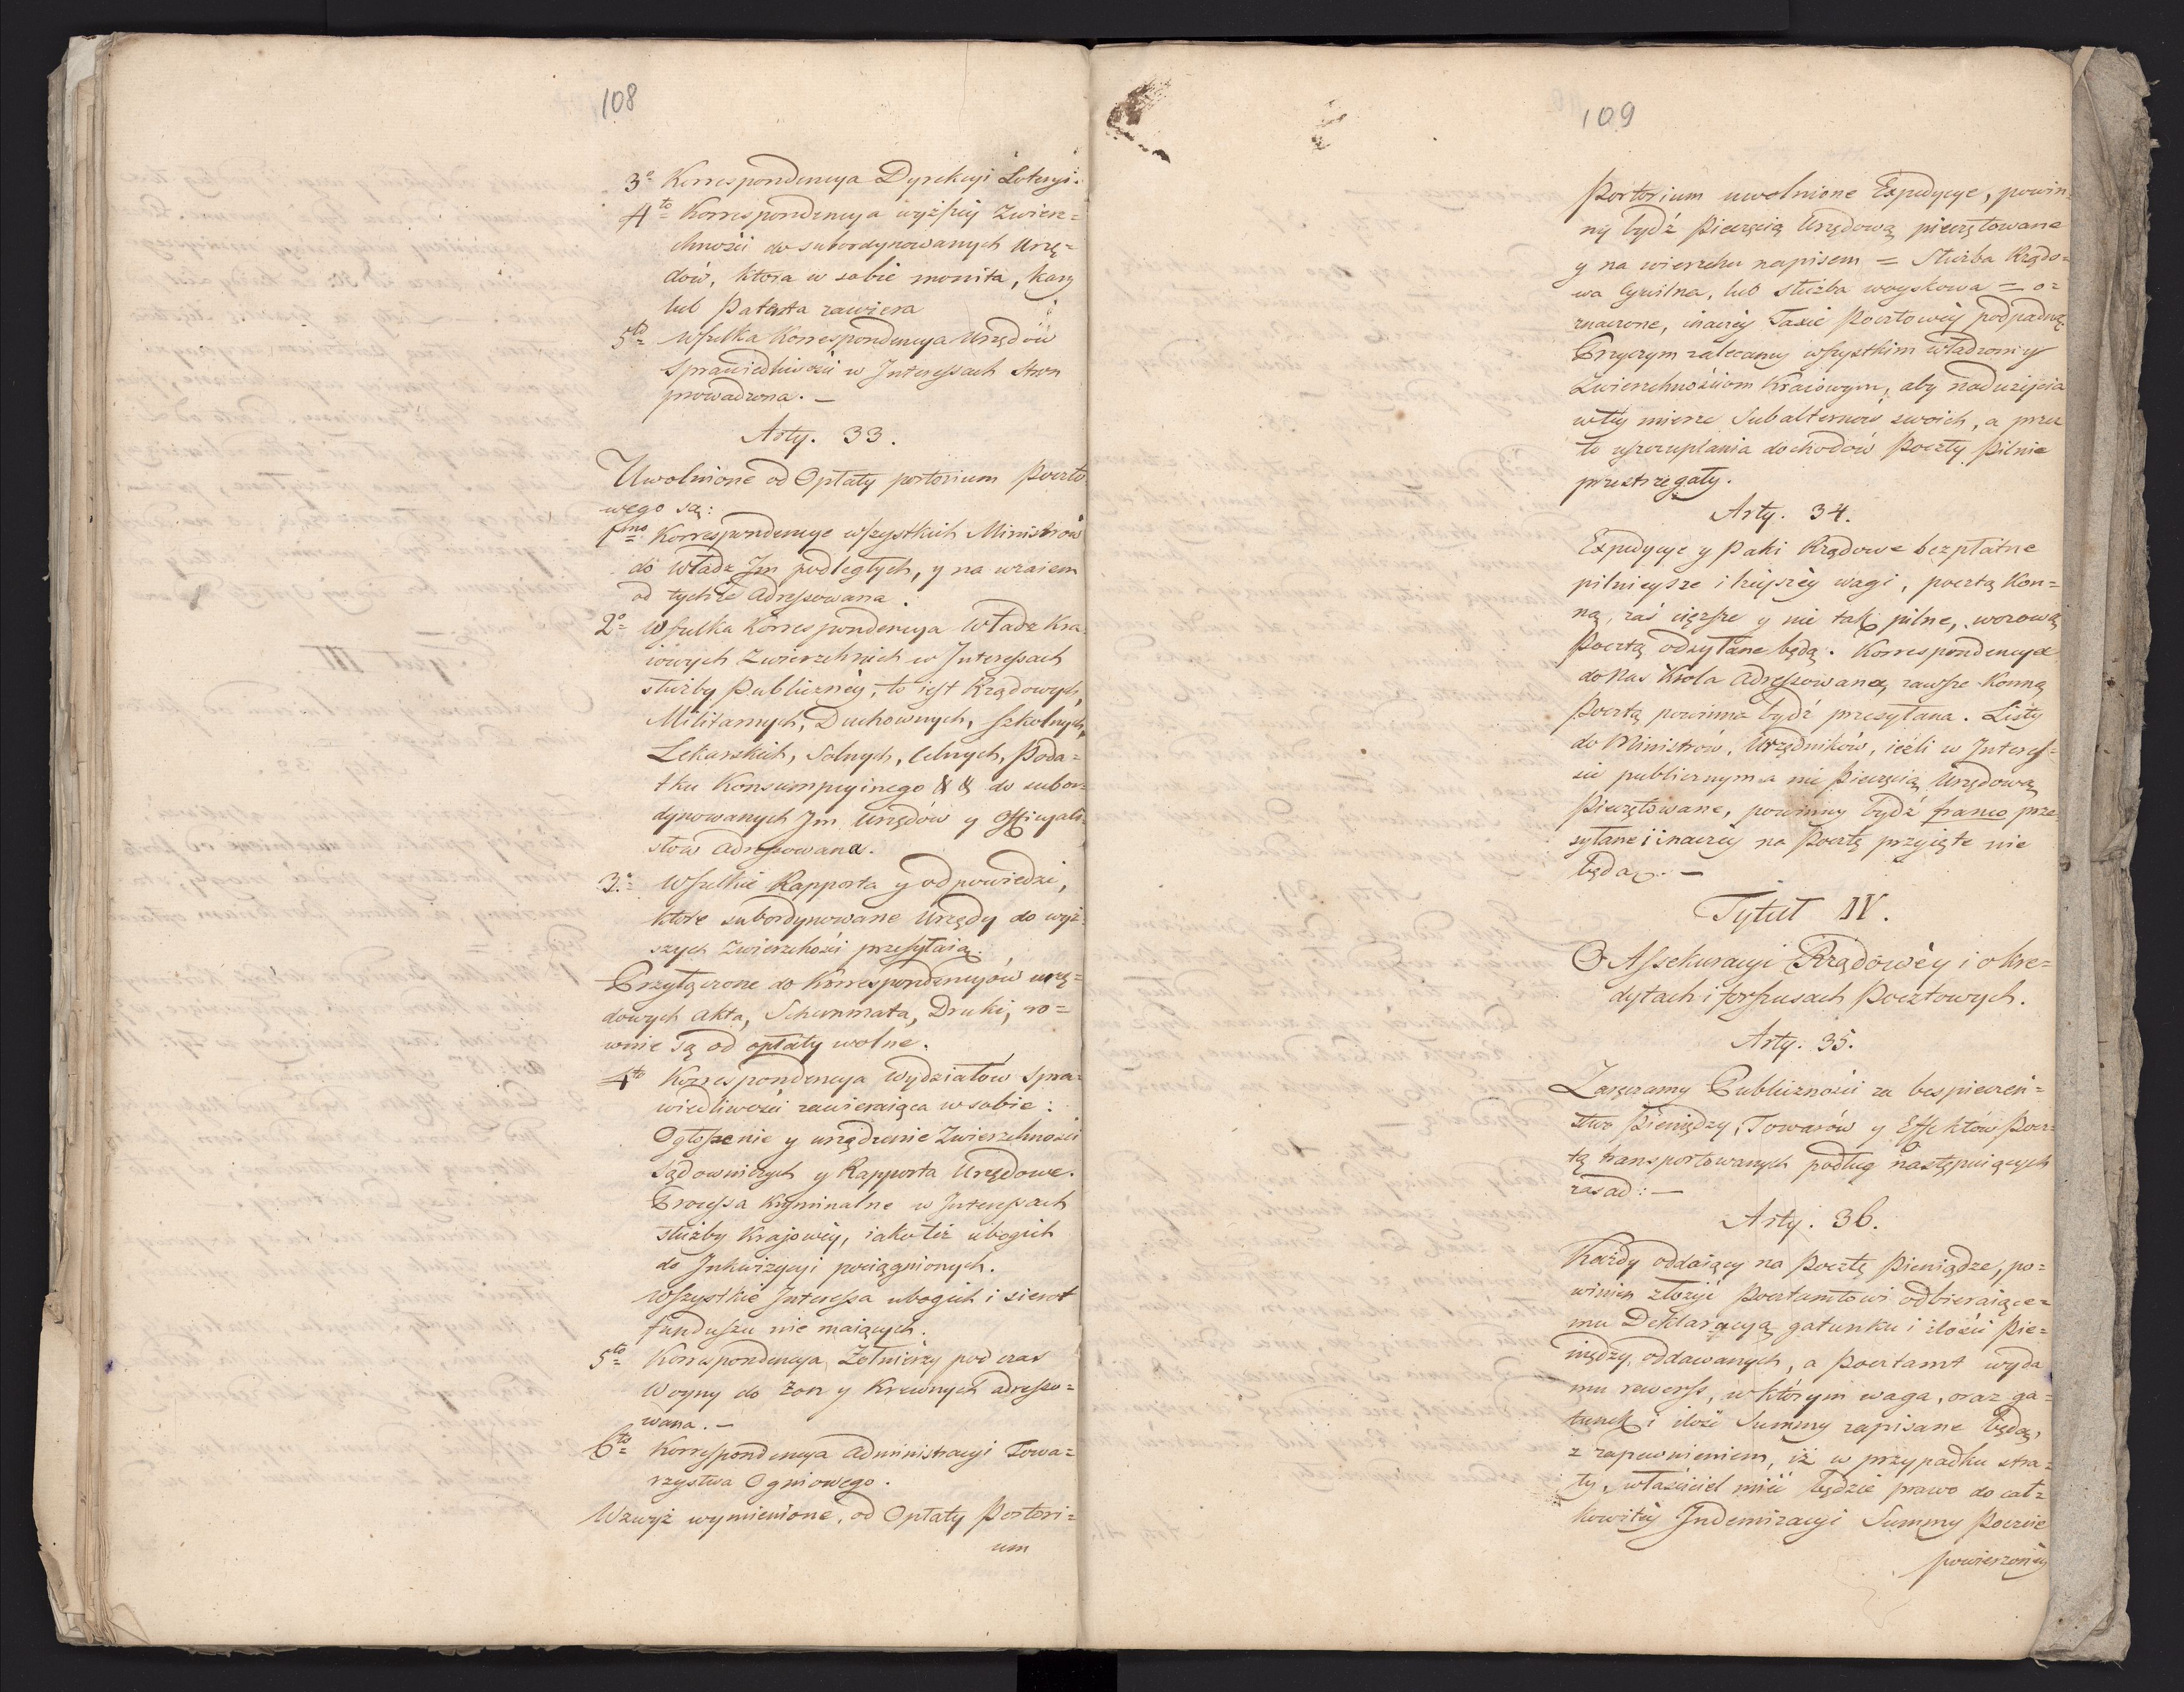 108
3o Korrespondencya Dyrekcyi Loteryi.
4to Korrespondencya wyższey Zwierz=
chności do subordynowanych Urzę=
dów, ktora w sobie monita, kary
lub Patenta zawiera
5to Wszelka Korrespondencya Urzędów
Sprawiedliwości w Interessach stron
prowadzona. —
Arty. 33.
Uwolnione od Opłaty portorium poczto
wego są:
1mo Korrespondencye wszystkich Ministrów
do Władz Im podległych, y na wzaiem
od tychże Adressowana.
2o Wszelka Korrespondencya Władz Kra
iowych Zwierzchnich w Interessach
służby Publiczney, to iest Rządowych,
Militarnych, Duchownych, szkolnych,
Lekarskich, Solnych, Celnych, Poda=
tku Konsumpcyinego & & do subor=
dynowanych Im Urzędów y Officyali=
stów Adressowana.
3o Wszelkie Rapporta y odpowiedzi,
które subordynowane Urzędy do wyż=
szych Zwierzchości przesyłaią.
Przyłączone do Korrespondencyów urzę=
dowych akta, Schemmata, Druki, ró=
wnie są od opłaty wolne.
4to Korrespondencya Wydziałow Spra=
wiedliwości zawieraiąca w sobie:
Ogłoszenie y urządzenie Zwierzchności
Sądowniczych y Rapporta Urzędowe.
Processa kryminalne w Interessach
służby Krajowey, iako też ubogich
do Inkwizycyi pociągnionych.
Wszystkie Interessa ubogich i sierot
funduszu nie maiących.
5to Korrespondencya Żołnierzy pod czas
Woyny do żon y Krewnych adresso=
wana. —
6to Korrespondencya Administracyi Towa=
rzystwa Ogniowego.
Wzwyż wymienione, od Opłaty Portori=
um
109
Portorium uwolnione Expedycye, powin=
ny bydź Pieczęcią Urzędową pieczętowane
y na wierzchu napisem = Służba Rządo=
wa Cywilna, lub służba woyskowa = o=
znaczone, inaczey Taxie Pocztowey podpadną.
Przyczym zalecamy wszystkim Władzom y
Zwierzchnościom Kraiowym, aby nadużycia
w tey mierze Subalternów swoich, a przez
to uszczuplania dochodów Poczty pilnie
przestrzegały.
Arty. 34.
Expedycye y Paki Rządowe bezpłatne
pilnieysze i lżeyszey wagi, pocztą Kon=
ną, zaś cięższe y nie tak pilne, wozową
Pocztą odsyłane będą. Korrespondencya
do Nas Króla Adressowana, zawsze Konną
Pocztą powinna bydź przesyłana. Listy
do Ministrów, Urzędników, ieżli w Interes=
sie publicznym a nie Pieczęcią Urzędową
Pieczętowane, powinny bydź franco prze=
syłane i inaczey na Pocztę przyięte nie
będą. —
Tytuł IV.
O Assekuracyi Rządowéy i o kre=
dytach i forszusach Pocztowych.
Arty. 35.
Zaręczamy Publiczności za bespieczeń=
stwo Pieniędzy, Towarów y Effektów Pocz=
tą transportowanych podług następuiących
zasad: —
Arty. 36.
Każdy oddaiący na Pocztę Pieniądze, po=
winien złożyć Pocztamtowi odbieraiące=
mu Deklaracyą gatunku i ilości Pie=
niędzy oddawanych, a Pocztamt wyda
mu rewerss, w którym waga, oraz ga=
tunek i ilość Summy zapisane będą,
z zapewnieniem, iż w przypadku stra=
ty, właściciel mieć będzie prawo do cał=
kowitey Indemizacyi Summy Poczcie
powierzoney